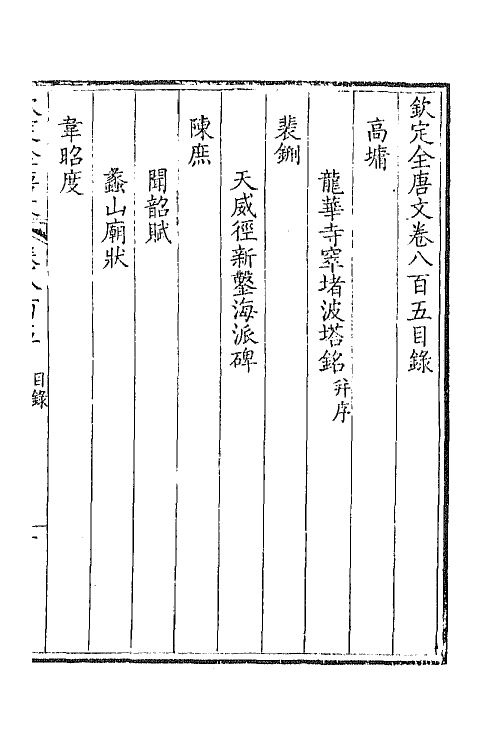 欽定全唐文卷八百五目錄
高墉
龍華寺窣堵波塔銘并序
裴鉶
天威徑新鑿海派碑
陳庶
聞韶賦
蠡山廟狀
韋昭度
目錄